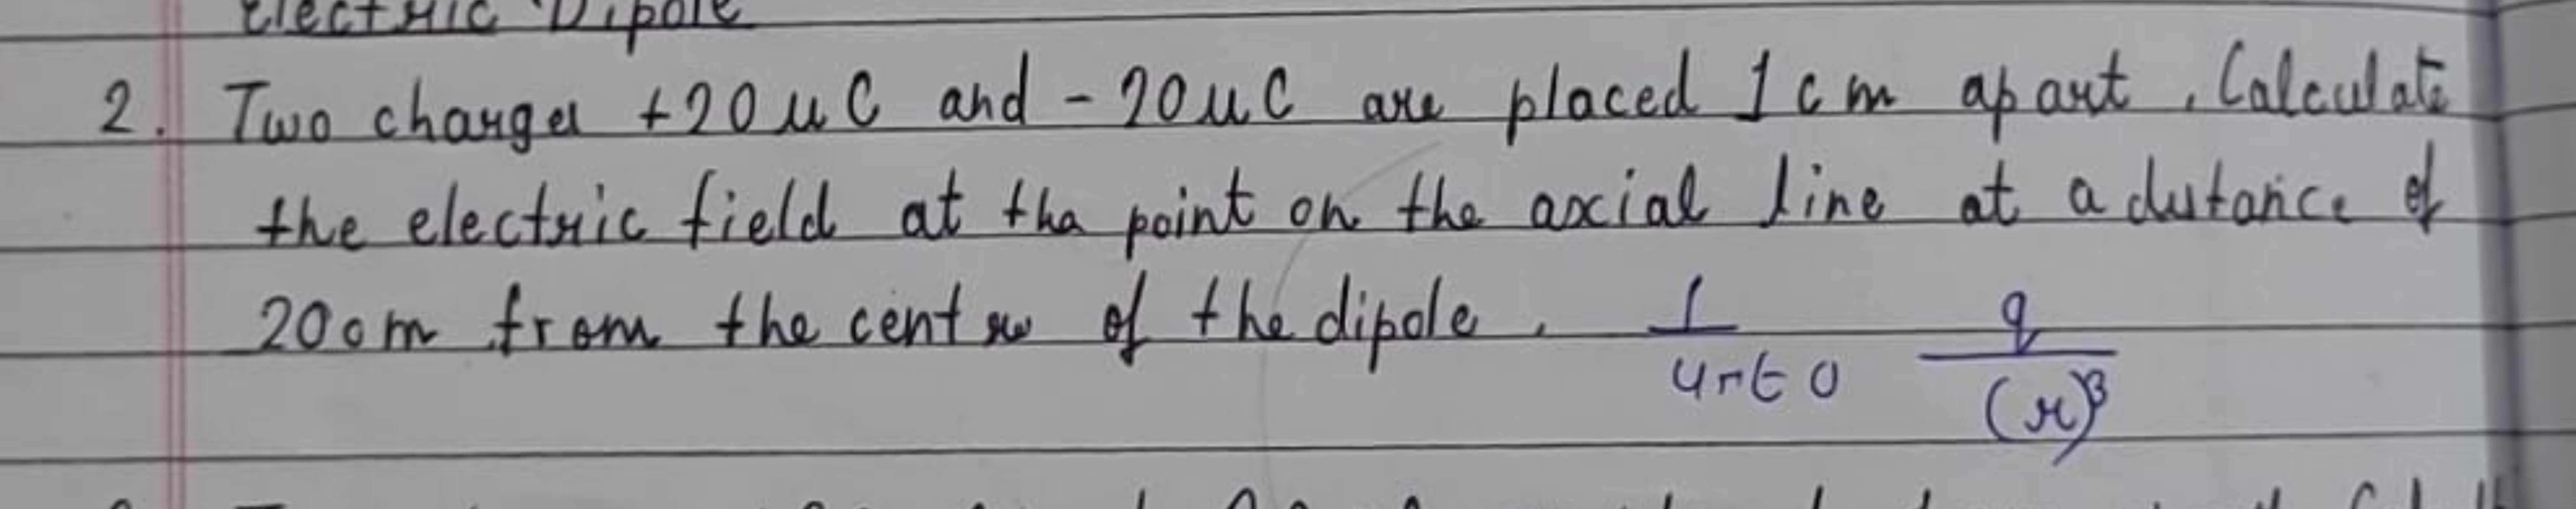 Electric Dipole
2. Two charges +20 μC and -20 μC are placed 1 cm apart. Calculate
the electric field at tha point on the axial line at a distance of
20cm from the centre of the dipole. 1/4πε0 q/(r)3